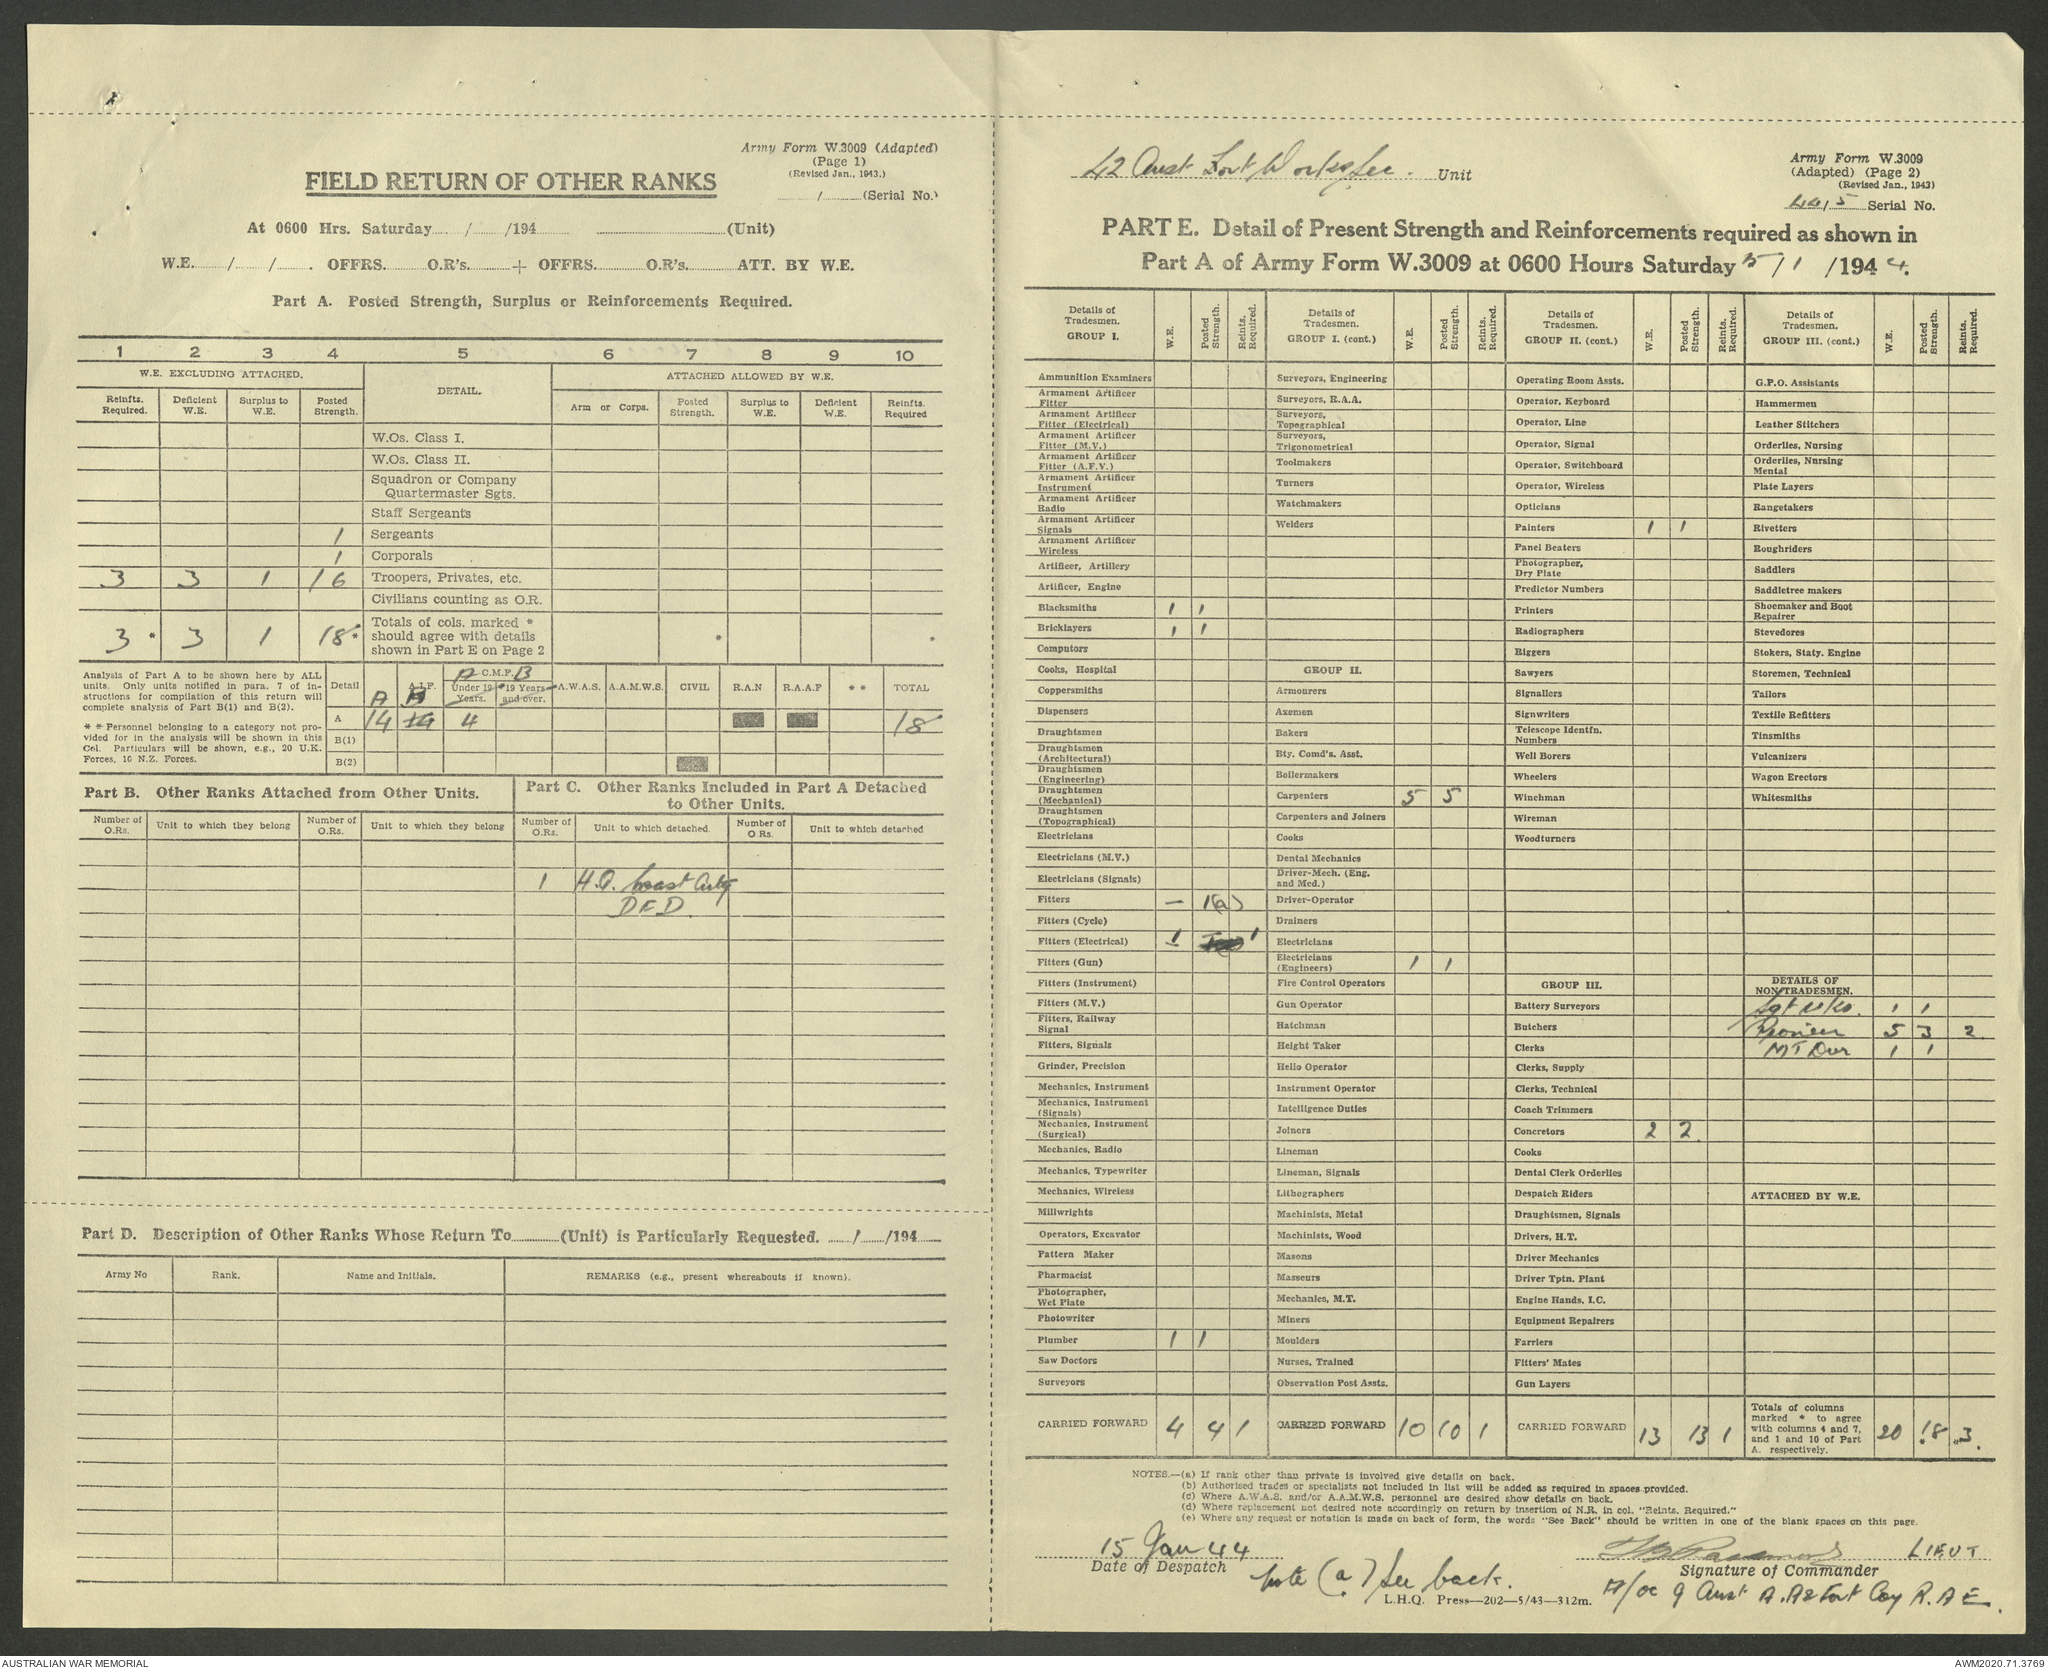 Army Form W.3009 (Adapted)
(Page 1)
(Revised Jan., 1943.)
/ (Serial No.)
FIELD RETURN OF OTHER RANKS
At 0600 Hrs. Saturday / /194 (Unit)
W.E. / / . OFFRS. O.R's. + OFFRS. O.R's. ATT. BY W.E.
Part A. Posted Strength, Surplus or Reinforcements Required.
1 2 3 4 5 6 7 8 9 10
W.E. EXCLUDING ATTACHED. DETAIL. ATTACHED ALLOWED BY W.E.
Reinfts. Required. Deficient W.E. Surplus to W.E. Posted Strength. Arm or Corps. Posted Strength. Surplus to W.E. Deficient W.E. Reinfts. Required
W.Os. Class I.
W.Os. Class II.
Squadron or Company
Quartermaster Sgts.
Staff Sergeants
1 Sergeants
1 Corporals
3 3 1 16 Troopers, Privates, etc.
Civilians counting as O.R.
3 * 3 1 18 * Totals of cols. marked * * *
should agree with details
shown in Part E on Page 2
Analysis of Part A to be shown here by ALL
units. Only units notified in para. 7 of in-
structions for compilation of this return will
complete analysis of Part B(1) and B(2).
* * Personnel belonging to a category not pro-
vided for in the analysis will be shown in this
Col. Particulars will be shown, e.g., 20 U.K.
Forces, 10 N.Z. Forces.
Detail A A.I.F. A C.M.F. B Under 19 Years. 19 Years and over. A.W.A.S. A.A.M.W.S. CIVIL R.A.N R.A.A.F * * TOTAL
A 14 14 4 18
B(1)
B(2)
Part B. Other Ranks Attached from Other Units.
Number of O.Rs. Unit to which they belong Number of O.Rs. Unit to which they belong
Part C. Other Ranks Included in Part A Detached
to Other Units.
Number of O.Rs. Unit to which detached. Number of O.Rs. Unit to which detached
1 H.Q. Coast Arty
D.F.D.
Part D. Description of Other Ranks Whose Return To (Unit) is Particularly Requested. / /194
Army No Rank. Name and Initials. REMARKS (e.g., present whereabouts if known).
42 Aust Fort Works Sec. Unit
Army Form W.3009
(Adapted) (Page 2)
(Revised Jan., 1943)
44/5 Serial No.
PART E. Detail of Present Strength and Reinforcements required as shown in
Part A of Army Form W.3009 at 0600 Hours Saturday 15/1/1944.
Details of Tradesmen. GROUP I. W.E. Posted Strength. Reints. Required.
Ammunition Examiners
Armament Artificer Fitter
Armament Artificer Fitter (Electrical)
Armament Artificer Fitter (M.V.)
Armament Artificer Fitter (A.F.V.)
Armament Artificer Instrument
Armament Artificer Radio
Armament Artificer Signals
Armament Artificer Wireless
Artificer, Artillery
Artificer, Engine
Blacksmiths 1 1
Bricklayers 1 1
Computors
Cooks, Hospital
Coppersmiths
Dispensers
Draughtsmen
Draughtsmen (Architectural)
Draughtsmen (Engineering)
Draughtsmen (Mechanical)
Draughtsmen (Topographical)
Electricians
Electricians (M.V.)
Electricians (Signals)
Fitters — 1(a)
Fitters (Cycle)
Fitters (Electrical) 1 1
Fitters (Gun)
Fitters (Instrument)
Fitters (M.V.)
Fitters, Railway Signal
Fitters, Signals
Grinder, Precision
Mechanics, Instrument
Mechanics, Instrument (Signals)
Mechanics, Instrument (Surgical)
Mechanics, Radio
Mechanics, Typewriter
Mechanics, Wireless
Millwrights
Operators, Excavator
Pattern Maker
Pharmacist
Photographer, Wet Plate
Photowriter
Plumber 1 1
Saw Doctors
Surveyors
CARRIED FORWARD 4 4 1
Details of Tradesmen. GROUP I. (cont.) W.E. Posted Strength. Reints. Required.
Surveyors, Engineering
Surveyors, R.A.A.
Surveyors, Topographical
Surveyors, Trigonometrical
Toolmakers
Turners
Watchmakers
Welders
GROUP II.
Armourers
Axemen
Bakers
Bty. Comd's. Asst.
Boilermakers
Carpenters 5 5
Carpenters and Joiners
Cooks
Dental Mechanics
Driver-Mech. (Eng. and Med.)
Driver-Operator
Drainers
Electricians
Electricians (Engineers) 1 1
Fire Control Operators
Gun Operator
Hatchman
Height Taker
Helio Operator
Instrument Operator
Intelligence Duties
Joiners
Lineman
Lineman, Signals
Lithographers
Machinists, Metal
Machinists, Wood
Masons
Masseurs
Mechanics, M.T.
Miners
Moulders
Nurses, Trained
Observation Post Assts.
CARRIED FORWARD 10 10 1
Details of Tradesmen. GROUP II. (cont) W.E. Posted Strength. Reints. Required.
Operating Room Assts.
Operator, Keyboard
Operator, Line
Operator, Signal
Operator, Switchboard
Operator, Wireless
Opticians
Painters 1 1
Panel Beaters
Photographer, Dry Plate
Predictor Numbers
Printers
Radiographers
Riggers
Sawyers
Signallers
Signwriters
Telescope Identfn. Numbers
Well Borers
Wheelers
Winchman
Wireman
Woodturners
GROUP III.
Battery Surveyors
Butchers
Clerks
Clerks, Supply
Clerks, Technical
Coach Trimmers
Concretors 2 2
Cooks
Dental Clerk Orderlies
Despatch Riders
Draughtsmen, Signals
Drivers, H.T.
Driver Mechanics
Driver Tptn. Plant
Engine Hands, I.C.
Equipment Repairers
Farriers
Fitters' Mates
Gun Layers
CARRIED FORWARD 13 13 1
Details of Tradesmen. GROUP III. (cont.) W.E. Posted Strength. Reints. Required.
G.P.O. Assistants
Hammermen
Leather Stitchers
Orderlies, Nursing
Orderlies, Nursing Mental
Plate Layers
Rangetakers
Rivetters
Roughriders
Saddlers
Saddletree makers
Shoemaker and Boot Repairer
Stevedores
Stokers, Staty. Engine
Storemen, Technical
Tailors
Textile Refitters
Tinsmiths
Vulcanizers
Wagon Erectors
Whitesmiths
DETAILS OF NON-TRADESMEN.
Sgt Wks. 1 1
Pioneer 5 3 2
MT Dvr 1 1
ATTACHED BY W.E.
Totals of columns marked * to agree with columns 4 and 7, and 1 and 10 of Part A. respectively. 20 *18 *3.
NOTES.—(a) If rank other than private is involved give details on back.
(b) Authorised trades or specialists not included in list will be added as required in spaces provided.
(c) Where A.W.A.S. and/or A.A.M.W.S. personnel are desired show details on back.
(d) Where replacement not desired note accordingly on return by insertion of N.R. in col. "Reints. Required."
(e) Where any request or notation is made on back of form, the words "See Back" should be written in one of the blank spaces on this page.
15 Jan 44 LIEUT
Date of Despatch Signature of Commander
Note (a) See back. A/OC 9 Aust A.A & Fort Coy R.A.E.
L.H.Q. Press—202—5/43—312m.
AUSTRALIAN WAR MEMORIAL AWM2020.71.3769